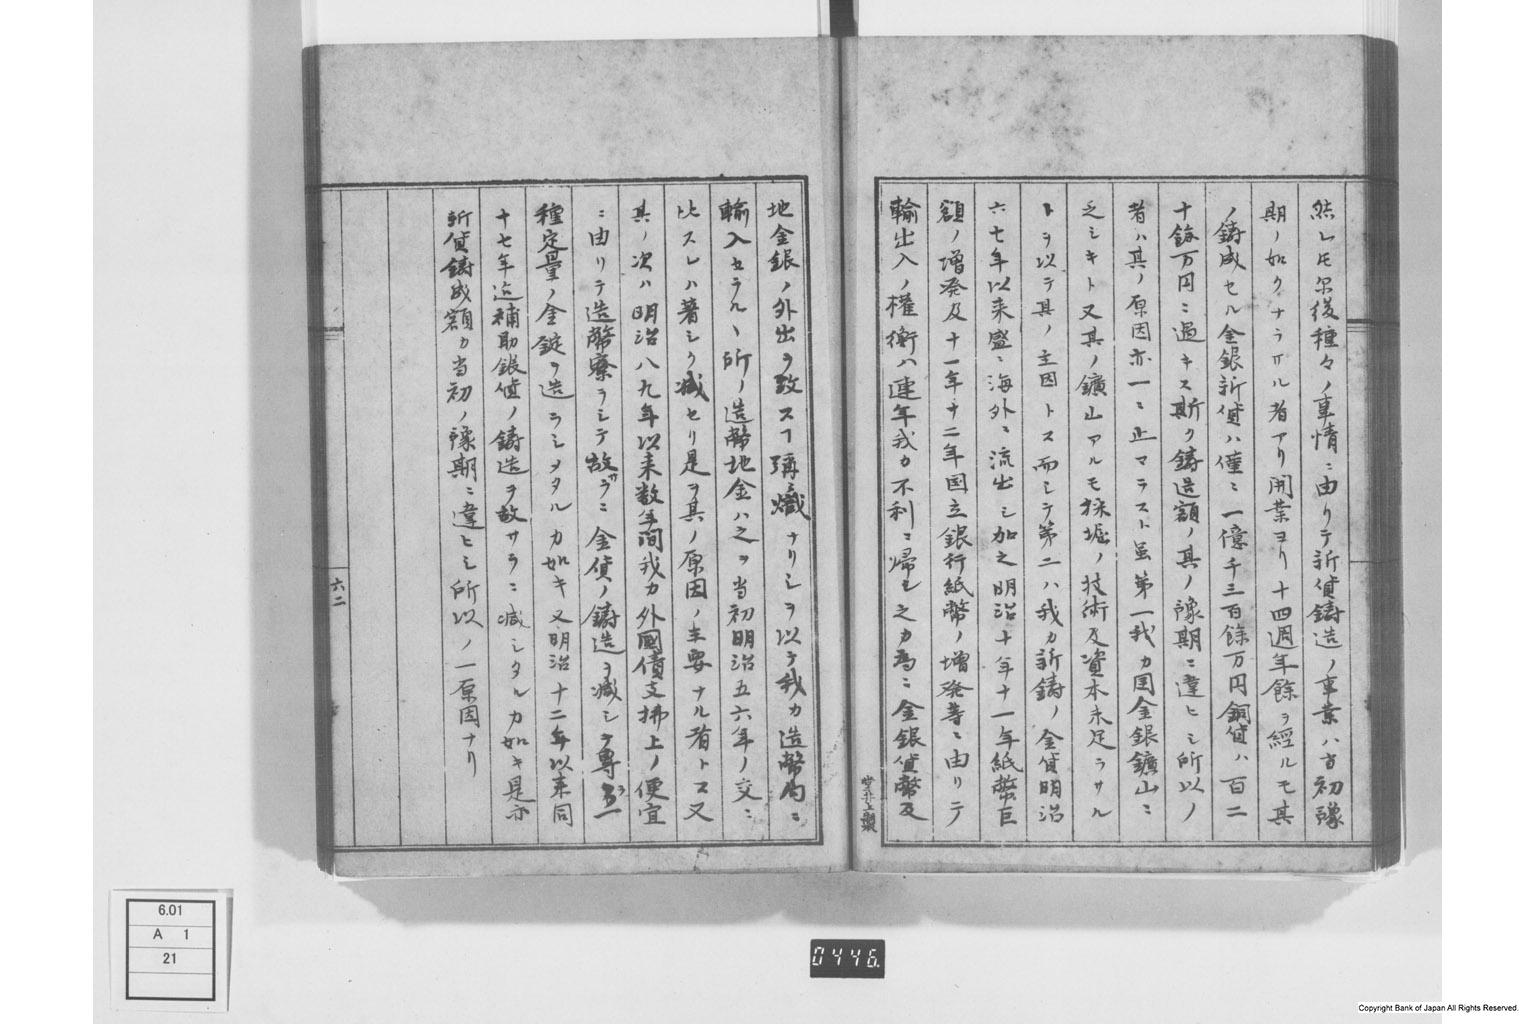 然レトモ尓後種々ノ事情ニ由リテ新貨鋳造ノ事業ハ当初豫
期ノ如クナラサル者アリ開業ヨリ十四週年餘ヲ經ルモ其
ノ鋳成セル金銀新貨ハ僅ニ一億千三百餘万円銅貨ハ百二
十餘万円ニ過キス斯ク鋳造額ノ其ノ豫期ニ違ヒシ所以ノ
者ハ其ノ原因亦一ニ止マラスト虽第一我カ国金銀鑛山ニ
乏シキト又其ノ鑛山アルモ採堀ノ技術及資本未足ラサル
トヲ以テ其ノ主因トス而シテ第二ハ我カ新鋳ノ金貨明治
六七年以来盛ニ海外ニ流出シ加之明治十年十一年紙幣巨
額ノ増発及十一年十二年国立銀行紙幣ノ増発等ニ由リテ
輸出入ノ權衡ハ連年我カ不利ニ帰シ之カ為ニ金銀貨幣及
地金銀ノ外出ヲ致スヿ弥熾ナリシヲ以テ我カ造幣局ニ
輸入セラルヽ所ノ造幣地金ハ之ヲ当初明治五六年ノ交ニ
比スレハ著シク减セリ是ヲ其ノ原因ノ主要ナル者トス又
其ノ次ハ明治八九年以来数年間我カ外國債支拂上ノ便宜
ニ由リテ造幣寮ヲシテ故ラニ金貨ノ鋳造ヲ减シテ専ラ一
種定量ノ金錠ヲ造ラシメタルカ如キ又明治十二年以来同
十七年迄補助銀貨ノ鋳造ヲ故サラニ减シタルカ如キ是亦
新貨鋳成額カ当初ノ豫期ニ違ヒシ所以ノ一原因ナリ
六二
6.01
A 1
21
0446.
Copyright Bank of Japan All Rights Reserved.